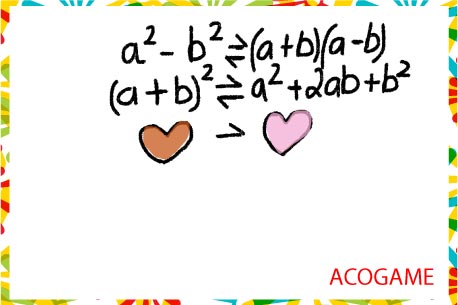 a² - b² ⇌ (a+b)(a-b)
(a+b)² ⇌ a²+2ab+b²
⇀
ACOGAME